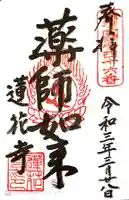 奉拝
令和三年三月廿八日
薬師如来
蓮花寺